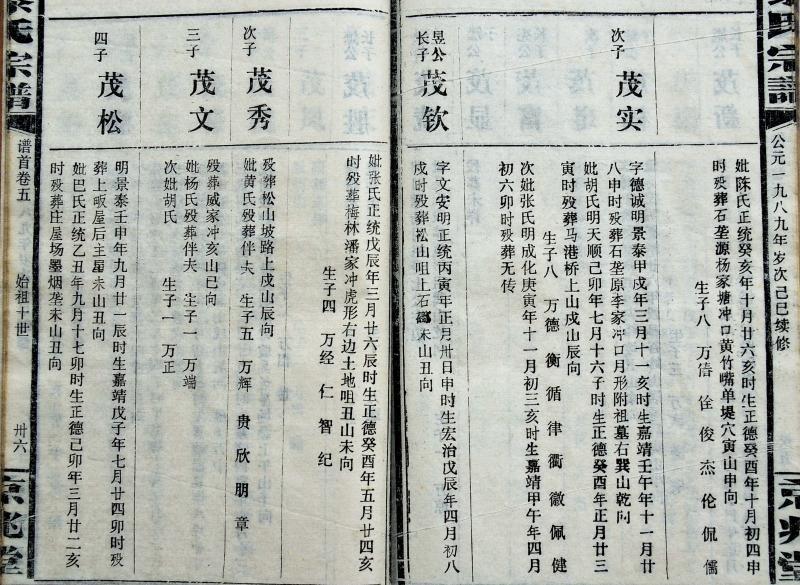 妣陈氏正统癸亥年十月廿六亥时生正德癸酉年十月初四申
时殁葬石垄源杨家塘冲口黄竹嘴单堤穴寅山申向
生子八 万信 佺 俊 杰 伦 侃 儒
次子 茂实
字德诚明景泰甲戌年三月十一亥时生嘉靖壬午年十一月廿
八申时殁葬石垄原李家冲口月形附祖墓右巽山乾向
妣胡氏明天顺己卯年七月十六子时生正德癸酉年正月廿三
寅时殁葬马港桥上山戍山辰向
生子八 万德 衡 循 律 衢 徽 佩 健
次妣张氏明成化庚寅年十一月初三亥时生嘉靖甲午年四月
初六卯时殁葬无传
昱公长子 茂钦
字文安明正统丙寅年正月卅日申时生宏治戊辰年四月初八
戍时殁葬松山咀上石 未山丑向
妣张氏正统戊辰年三月廿六辰时生正德癸酉年五月廿四亥
时殁葬梅林潘家冲虎形右边土地咀丑山未向
生子四 万经 仁 智 纪
次子 茂秀
殁葬松山坡路上戍山辰向
妣黄氏殁葬伴夫 生子五 万辉 贵 欣 朋 章
三子 茂文
殁葬戚家冲亥山巳向
妣杨氏殁葬伴夫 生子一 万端
次妣胡氏 生子一 万正
四子 茂松
明景泰壬申年九月廿一辰时生嘉靖戊子年七月廿四卯时殁
葬上畈屋后主星未山丑向
妣巴氏正统乙丑年九月十七卯时生正德己卯年三月廿二亥
时殁葬庄屋场墨烟垄未山丑向
氏宗谱
公元一九八九年岁次己巳续修
京兆堂
氏宗谱
谱首卷五
始祖十世
卅六
京兆堂